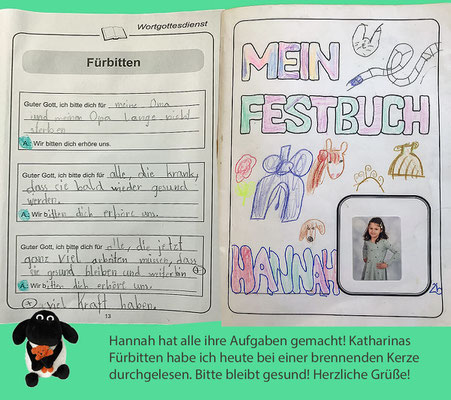 Wortgottesdienst
Fürbitten
Guter Gott, ich bitte dich für meine Oma
und meinen Opa Lange nicht
sterben
A: Wir bitten dich erhöre uns.
Guter Gott, ich bitte dich für alle, die krank,
dass sie bald wieder gesund
werden.
A: Wir bitten dich erhöre uns.
Guter Gott, ich bitte dich für alle, die jetzt
ganz viel arbeiten müssen, dass
sie gesund bleiben und weiterhin
A: Wir bitten dich erhöre uns.
viel Kraft haben.
13
MEIN
FESTBUCH
HANNAH
2b
Hannah hat alle ihre Aufgaben gemacht! Katharinas
Fürbitten habe ich heute bei einer brennenden Kerze
durchgelesen. Bitte bleibt gesund! Herzliche Grüße!